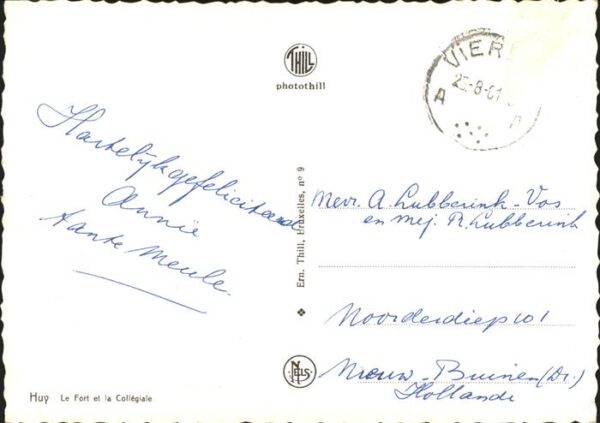 THILL
photothill
VIER
25-8-61
A A
Hartelijk gefeliciteerd
Annie
tante Meule.
Ern. Thill, Bruxelles, n° 9
Mevr. A. Lubberink-Vos
en mej. R. Lubberink
Noorderdiep 101
Nieuw-Buinen (Dr.)
Hollande
NELS
Huy Le Fort et la Collégiale